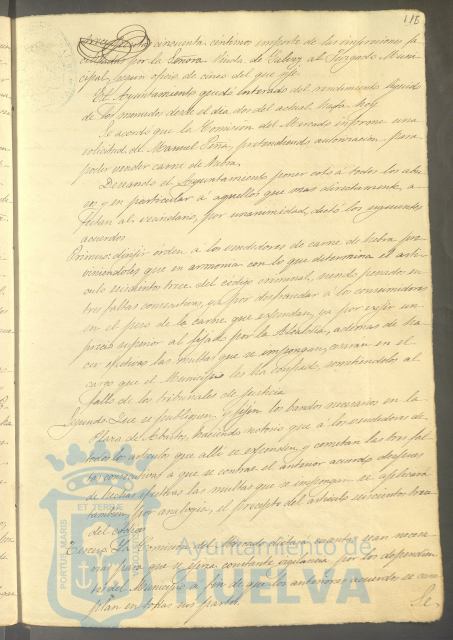 118
cincuenta céntimos importe de las impresiones fa-
cilitadas por la Señora Viuda de al Juzgado Muni-
cipal, según oficio de cinco del que rije.
El Ayuntamiento quedó enterado del rendimiento líquido
de los menudos desde el dia dos del actual hasta hoy.
Se acordó que la Comision del Mercado informe una
solicitud de Manuel Peña, pretendiendo autorización para
poder vender carne de hebra.
Deseando el Ayuntamiento poner coto á todos los abu-
sos y en particular á aquellos que mas directamente, a-
fectan al vecindario, por unanimidad, dictó los siguientes
acuerdos
Primero: dirijir órden á los vendedores de carne de hebra pre-
viniéndoles que en armonia con lo que determina el artí-
culo quinientos trece del código criminal, siendo penados en
tres faltas consecutivas, ya por defraudar á los consumidores
en el peso de la carne que expendan, ya por exijir un
precio superior al fijado por la Alcaldia, ademas de ha-
cer efectivas las multas que se impongan, cesarán en el
cargo que el Municipio les ha confiado, sometiéndolos al
fallo de los tribunales de justicia.
Segundo: Que se publiquen y fijen los bandos necesarios en la
Plaza de Abastos, haciendo notorio que á los vendedores de
todos los artículos que alli se expenden y cometan las tres fal-
tas consecutivas á que se contrae el anterior acuerdo despues
de hechas efectivas las multas que se impongan se aplicará
tambien, por analogia, el precepto del artículo quinientos trece
del código
Tercero: La Comision del Mercado dictará cuantas sean nece-
sarias para que se ejerza constante vigilancia por los dependien-
tes del Municipio á fin de que los anteriores acuerdos se cum-
plan en todas sus partes.
Se
PORTUS MARIS ET TERRAE
Ayuntamiento de
HUELVA